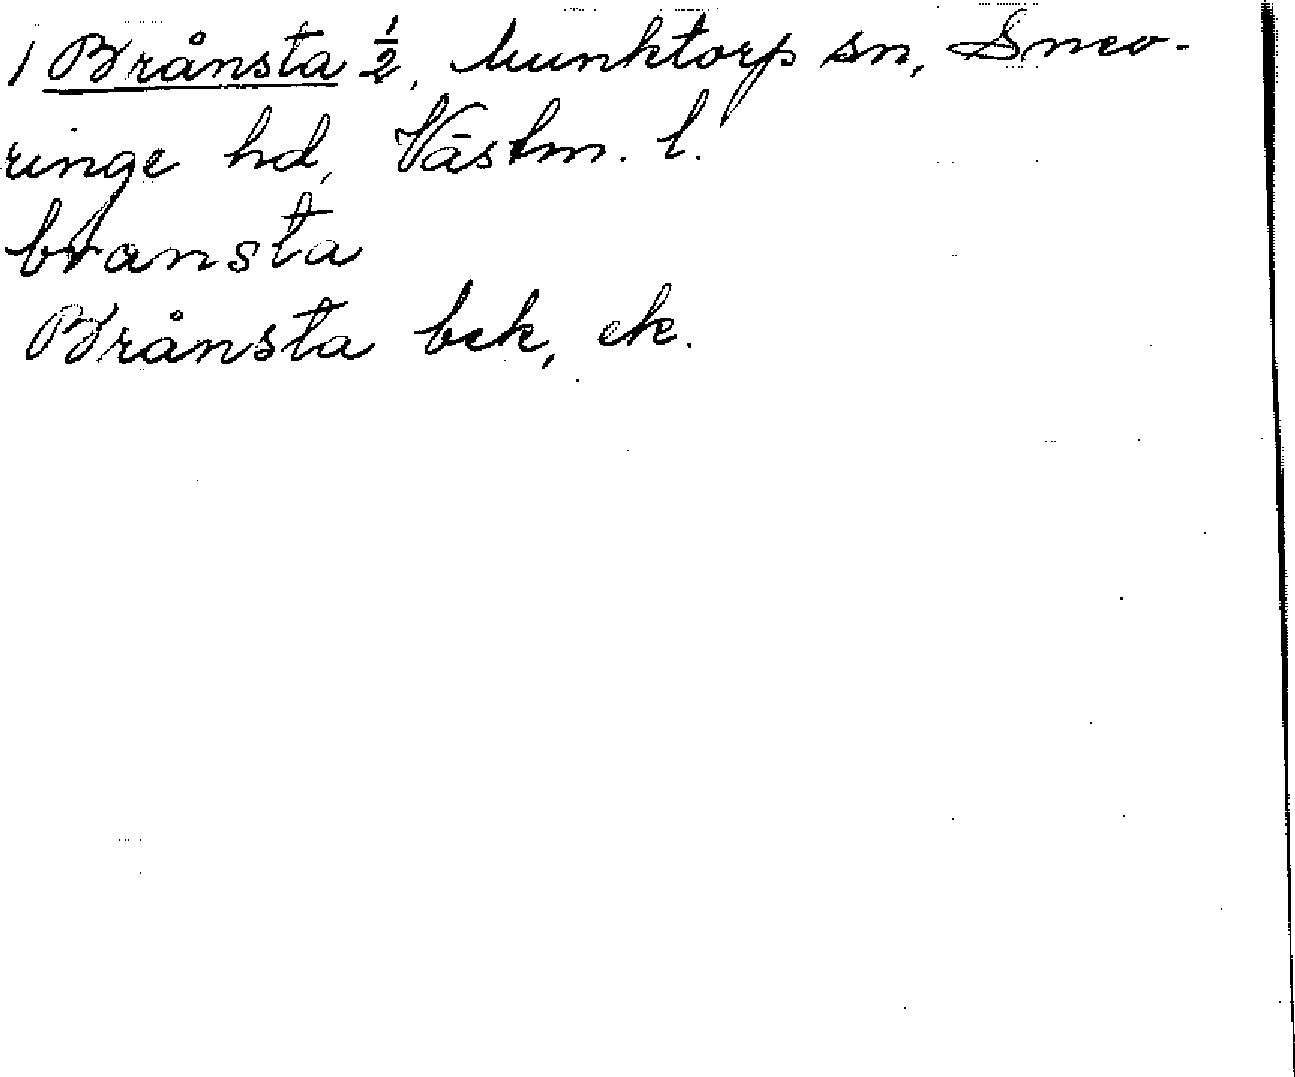 1 Brånsta ½, Munktorp sn, Snev-
ringe hd, Västm. l.
bransta
Brånsta bek, ek.